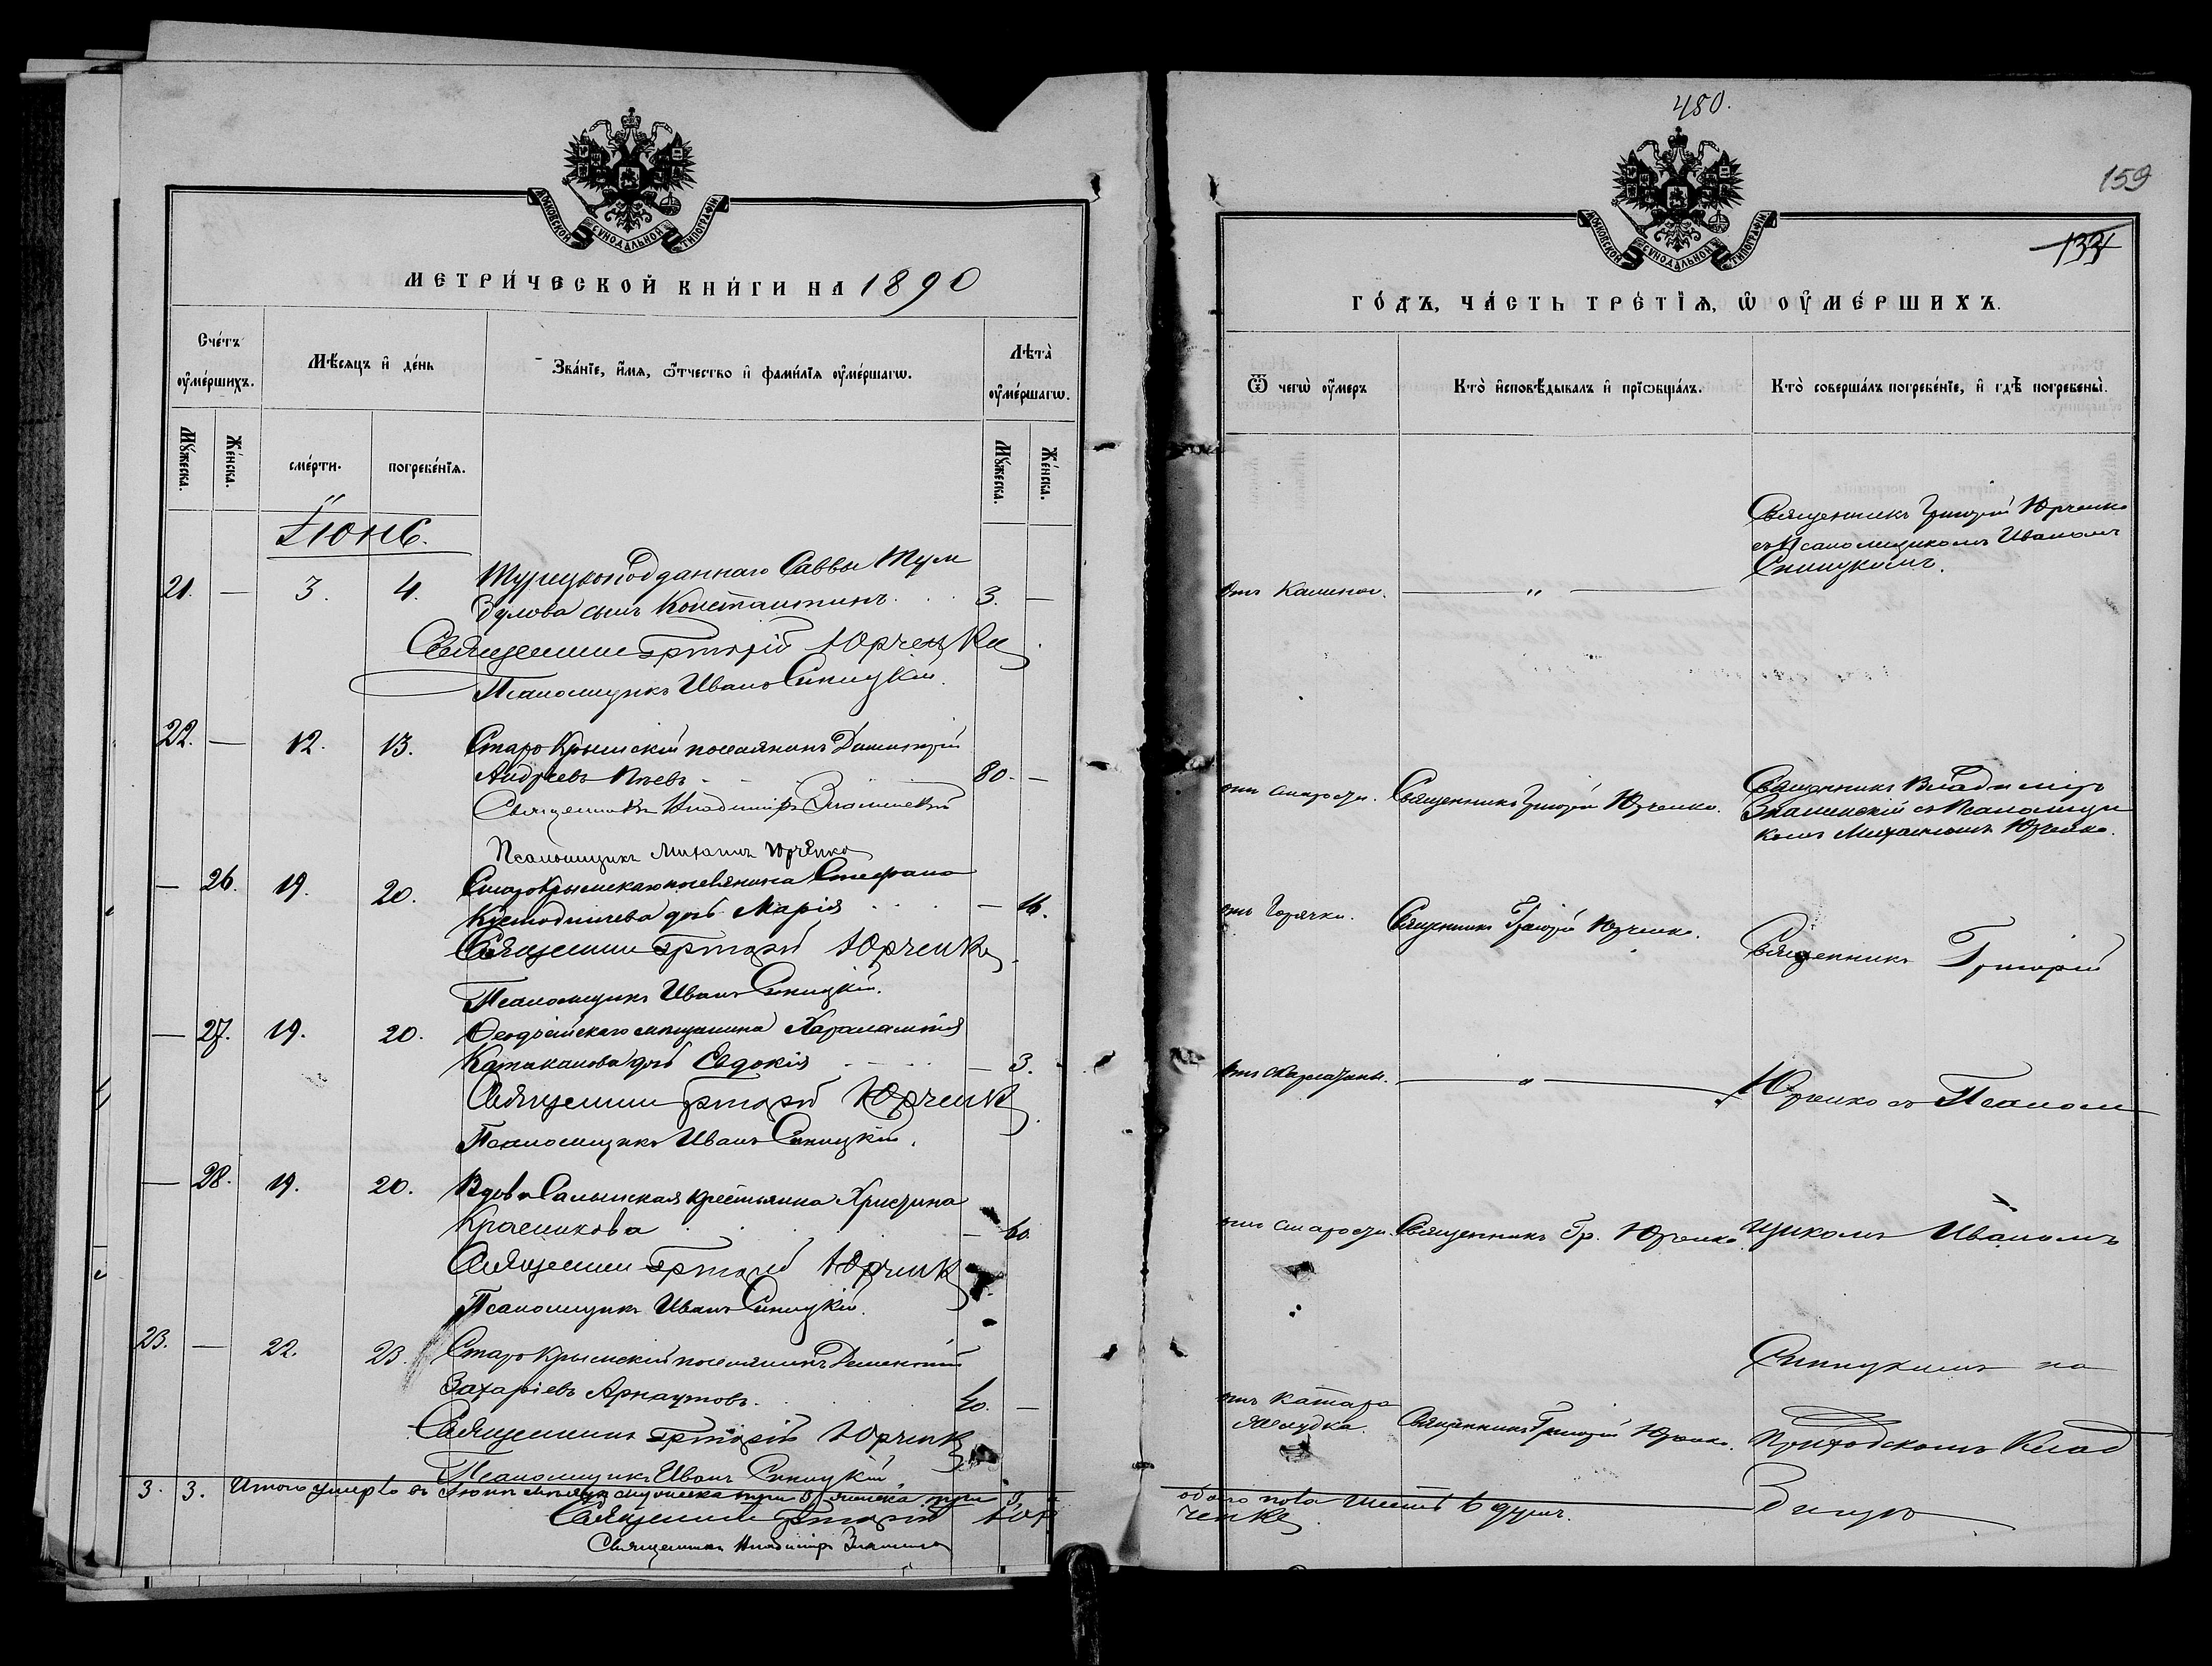 МОСКОВСКОЙ СѴНОДАЛЬНОЙ ТИПОГРАФІИ
МЕТРИ́ЧЕСКОЙ КНИ́ГИ НА 1890
Сче́тъ оу҆ме́ршихъ.
Мѣ́сяцъ и҆ де́нь
Зва́нїе, и҆́мя, ѻ҆́тчество и҆ фами́лїя оу҆ме́ршагѡ.
Лѣта̀ оу҆ме́ршагѡ.
Мꙋ́жеска.
Же́нска.
сме́рти.
погребе́нїя.
Мꙋ́жеска.
Же́нска.
Іюнь.
21. — 3. 4. Турецкоподданнаго Саввы
сынъ Константинъ. 3. —
Священникъ Григорій Юрченко
Псаломщикъ Иванъ Синицкій.
22. — 12. 13. Старо Крымскій поселянинъ Димитрій
Андреевъ 80. —
Священникъ Владиміръ Знаменскій
Псаломщикъ Михаилъ Юрченко
— 26. 19. 20. Старокрымскаго поселянина Стефана
дочь Марія — 16.
Священникъ Григорій Юрченко
Псаломщикъ Иванъ Синицкій.
— 27. 19. 20. Феодосійскаго мѣщанина Харалампія
дочь Евдокія — 3.
Священникъ Григорій Юрченко
Псаломщикъ Иванъ Синицкій.
— 28. 19. 20. Вдова крестьянка Христина
Красникова — 60.
Священникъ Григорій Юрченко
Псаломщикъ Иванъ Синицкій.
23. — 22. 23. Старо Крымскій поселянинъ Димитрій
Захаріевъ Арнаутовъ. 40. —
Священникъ Григорій Юрченко
Псаломщикъ Иванъ Синицкій
3. 3. Итого умерло въ Іюнѣ мѣсяцѣ мужеска три 3, женска три 3,
Священникъ Григорій Юр
Священникъ Владиміръ Знаменскій
480.
159
МОСКОВСКОЙ СѴНОДАЛЬНОЙ ТИПОГРАФІИ
ГО́ДЪ, ЧА́СТЬ ТРЕ́ТЇЯ, Ѡ҆ ОУ҆МЕ́РШИХЪ.
Ѿ чегѡ̀ оу҆́меръ
Кто̀ и҆сповѣ́дывалъ и҆ прїѡбща́лъ.
Кто̀ соверша́лъ погребе́нїе, и҆ гдѣ̀ погребены̀.
Священникъ Григорій Юрченко
съ Псаломщикомъ Иваномъ
Синицкимъ.
отъ — " —
отъ старости. Священникъ Григорій Юрченко.
Священникъ Владиміръ
Знаменскій съ Псаломщи
комъ Михаиломъ Юрченко.
отъ Горячки. Священникъ Григорій Юрченко.
Священникъ Григорій
отъ скарлатины. — " —
Юрченко съ Псалом
отъ старости. Священникъ Гр. Юрченко.
щикомъ Иваномъ
Синицкимъ на
отъ катара
желудка. Священникъ Григорій Юрченко.
Приходскомъ Клад
бищѣ
обоего пола шесть 6 душъ.
ченко